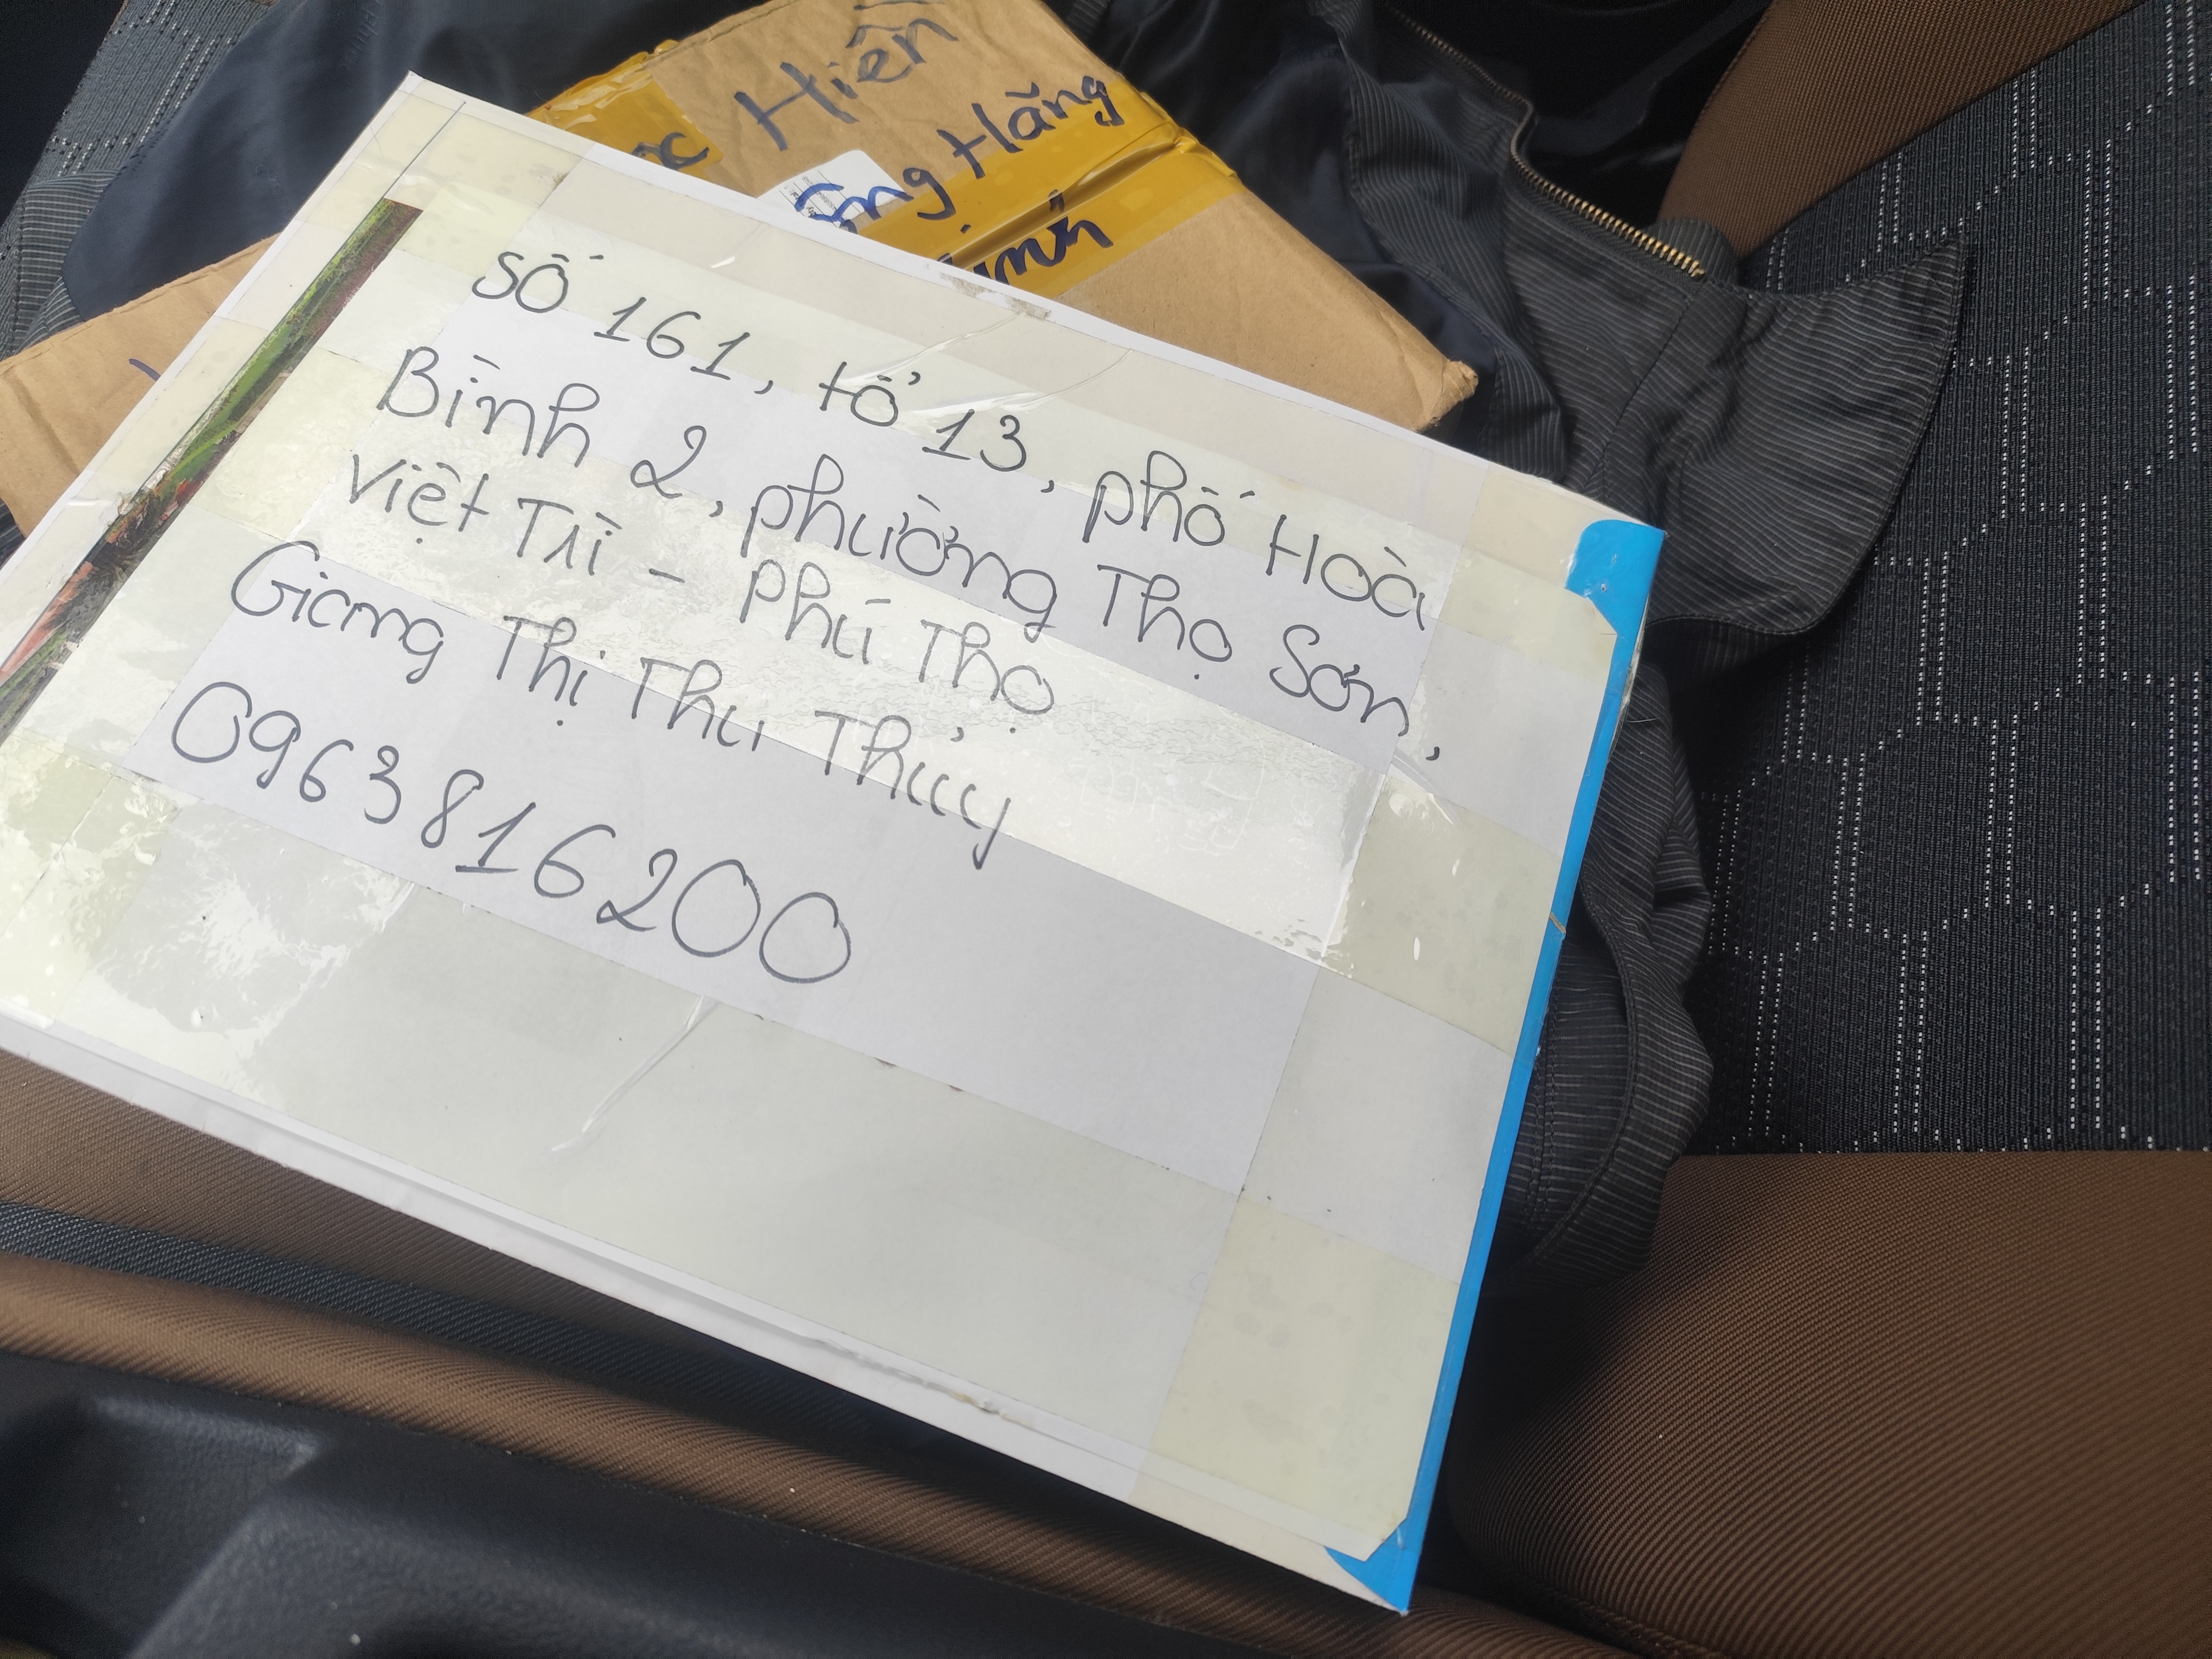 Hiền
Hằng
số 161, tổ 13, phố Hoà
Bình 2, phường Thọ Sơn,
Việt Trì - Phú Thọ
Giang Thị Thu Thủy
0963816200